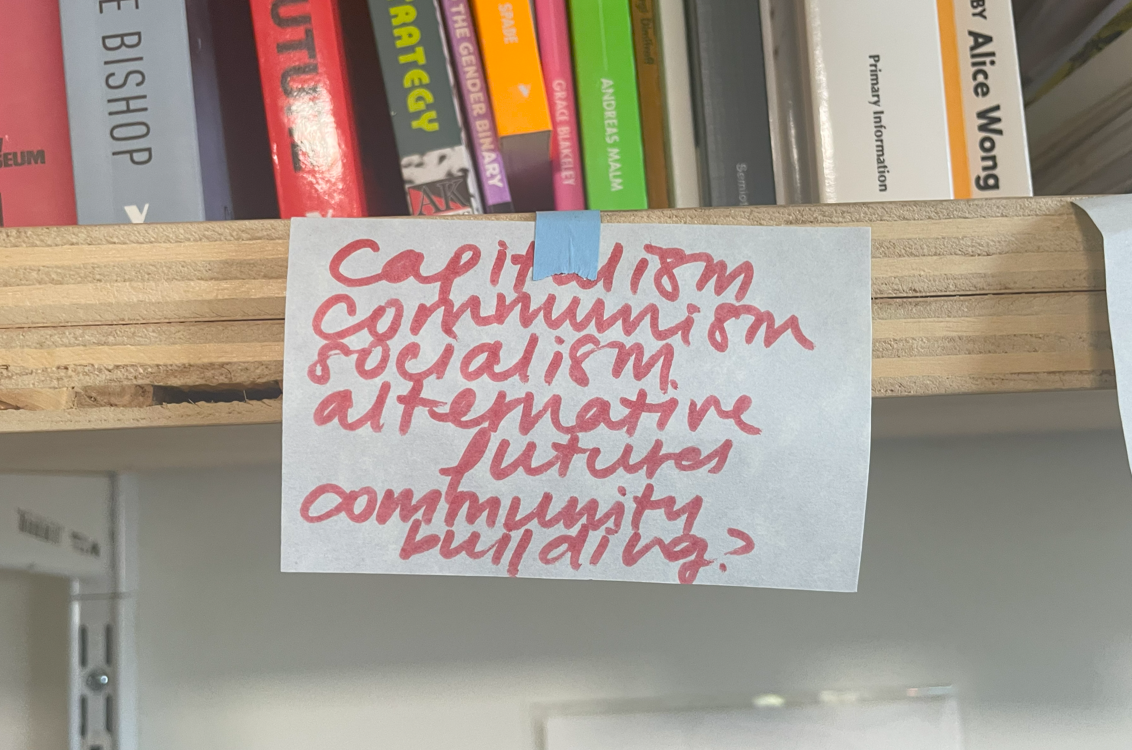 SEUM
E BISHOP
UTURE
RATEGY
AK
THE GENDER BINARY
SPADE
GRACE BLAKELEY
ANDREAS MALM
Dimitroff
Semiot
Primary Information
BY Alice Wong
Capitalism
communism
socialism
alternative
futures
community
building?